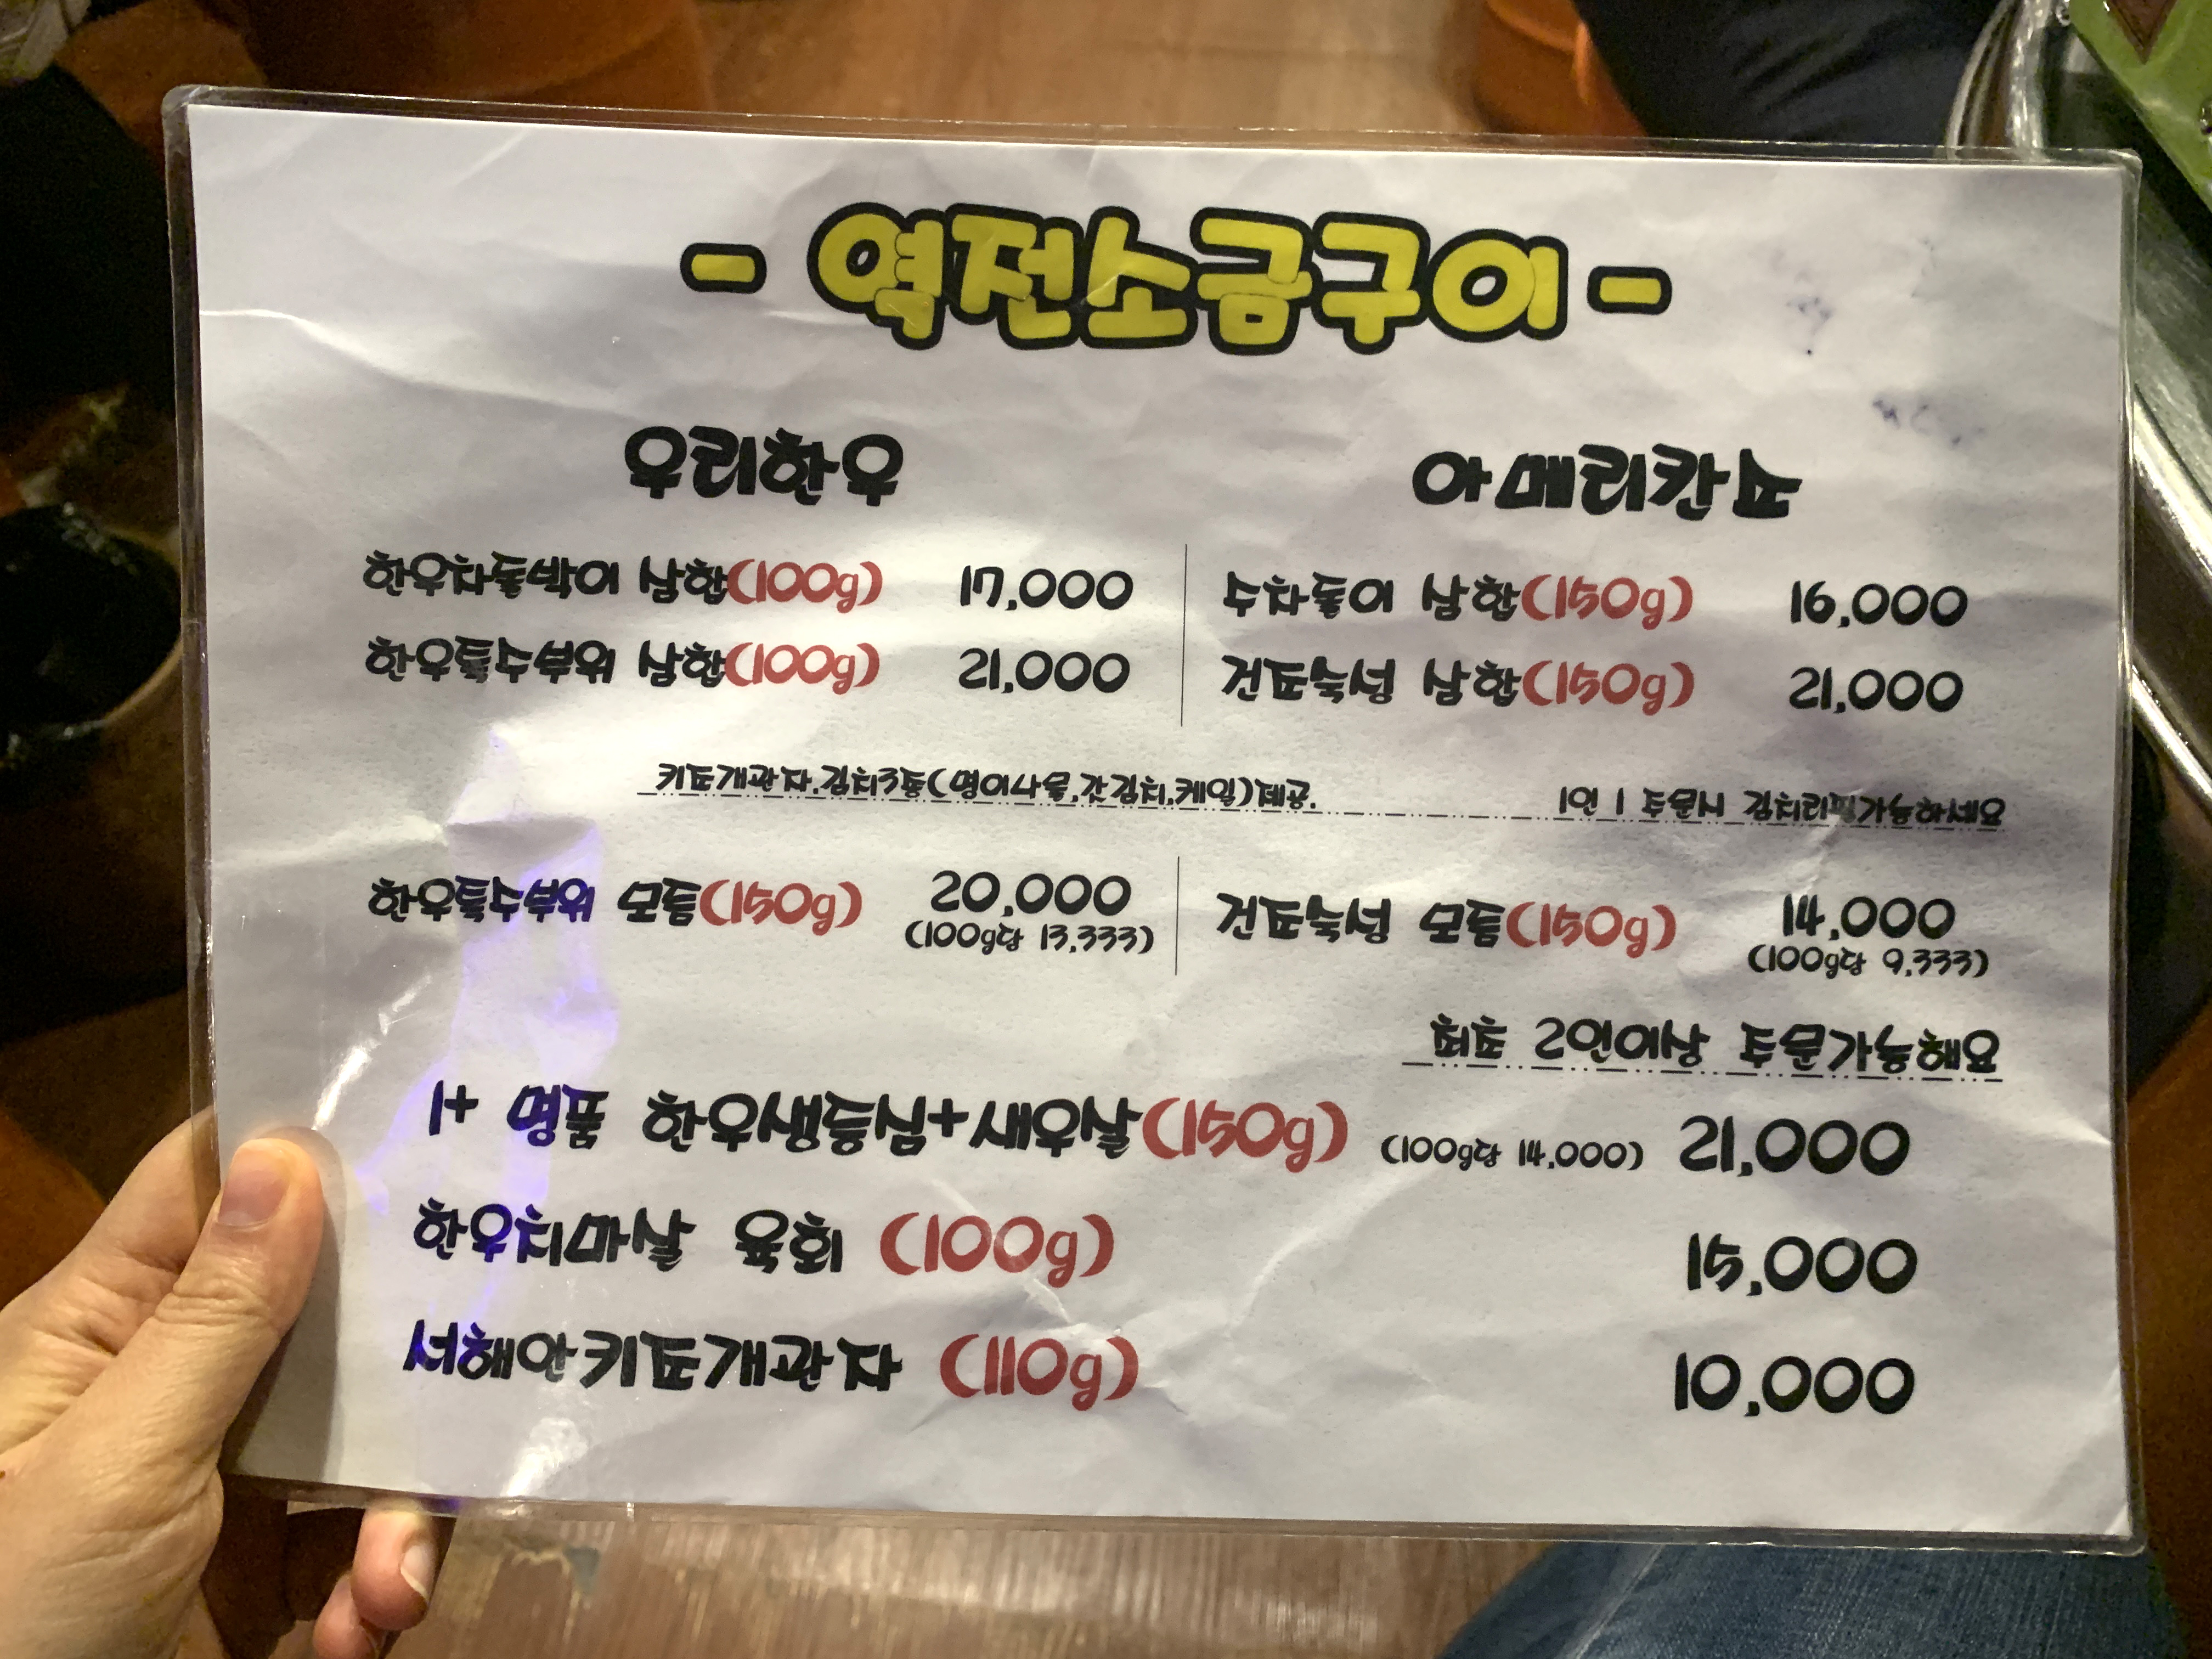 - 역전소금구이 -
우리한우
한우차돌박이 삼합(100g) 17,000
한우특수부위 삼합(100g) 21,000
아메리칸쇼
수차돌이 삼합(150g) 16,000
건포숙성 삼합(150g) 21,000
키포개관자.김치3종(명이나물,갓김치,케일)제공.
1인 1 주문시 김치리필가능하세요
한우특수부위 모듬(150g) 20,000
(100g당 13,333)
건포숙성 모듬(150g) 14,000
(100g당 9,333)
최초 2인이상 주문가능해요
1+ 명품 한우생등심+새우살(150g) (100g당 14,000) 21,000
한우치마살 육회 (100g) 15,000
서해안키포개관자 (110g) 10,000